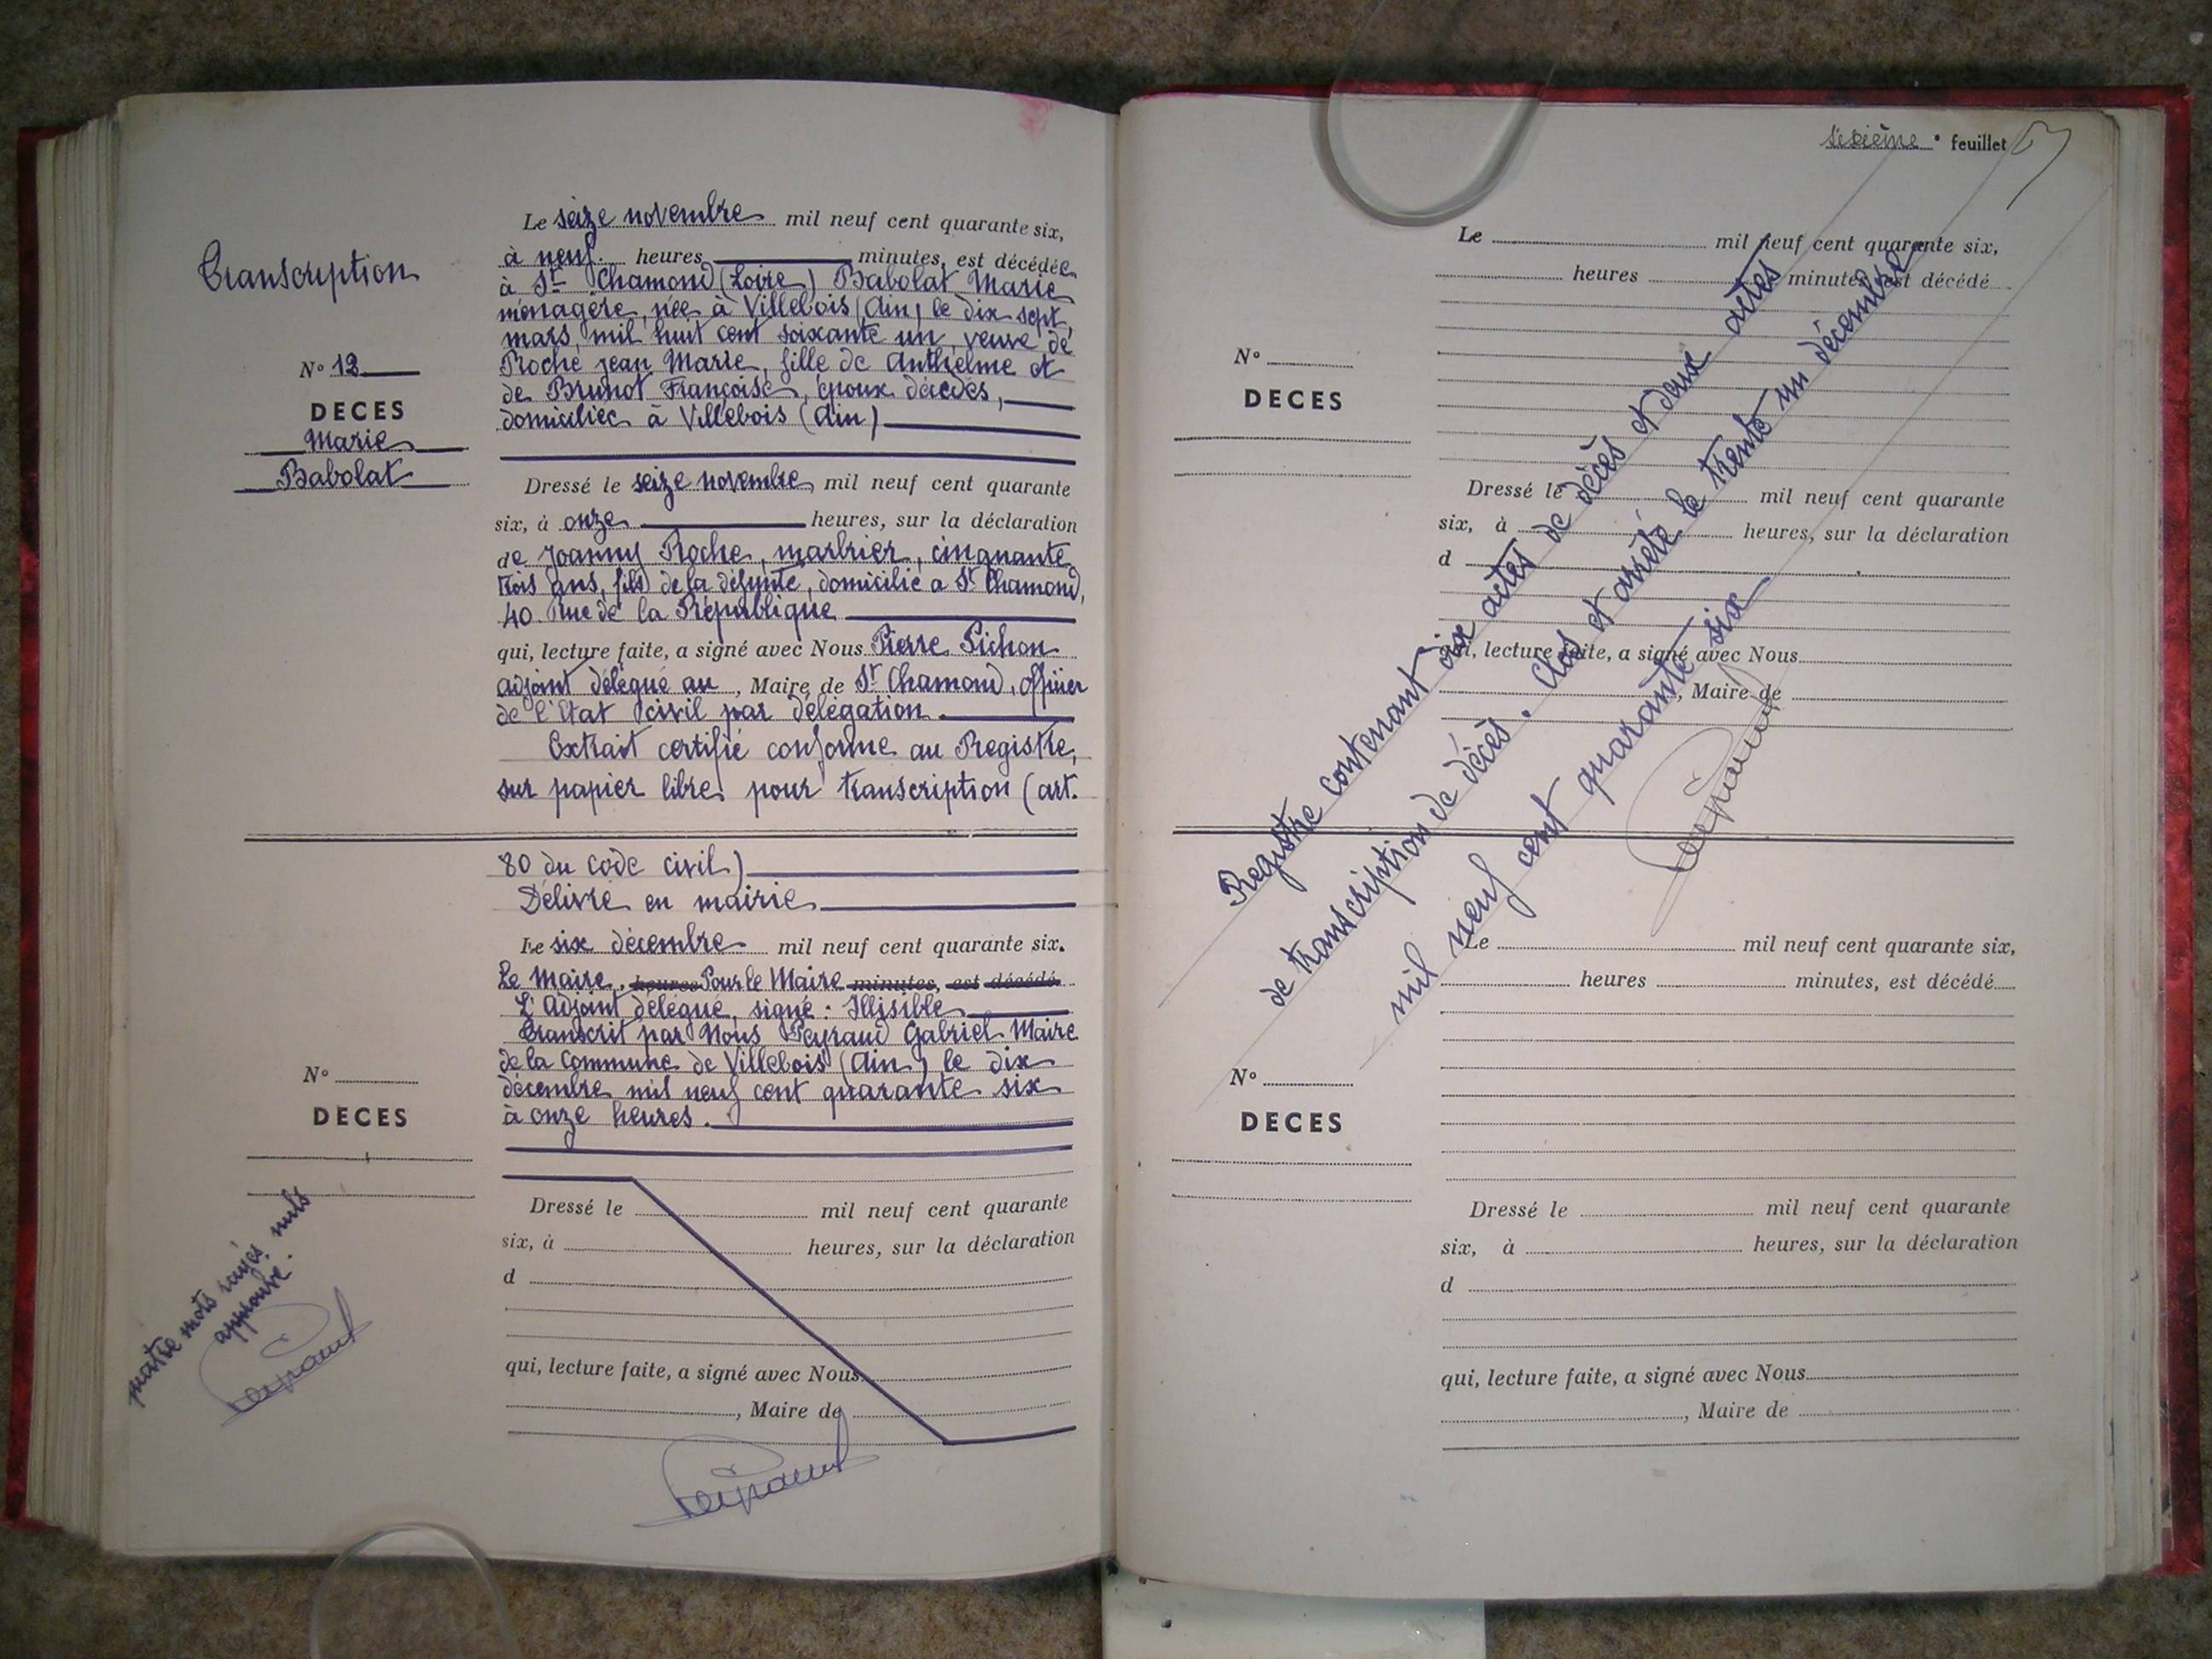 Transcription
N° 12
DECES
Marie
Babolat
Le seize novembre mil neuf cent quarante six,
à neuf heures minutes, est décédée
à St Chamond (Loire) Babolat Marie
ménagère, née à Villebois (Ain) le dix sept
mars, mil huit cent soixante un, veuve de
Roche jean Marie, fille de Anthelme et
de Brunot Françoise, époux décédés,
domiciliée à Villebois (Ain)
Dressé le seize novembre mil neuf cent quarante
six, à onze heures, sur la déclaration
de Joanny Roche, marbrier, cinquante
trois ans, fils de la défunte, domicilié a St Chamond,
40. Rue de la République
qui, lecture faite, a signé avec Nous Pierre Pichon
adjoint délégué au, Maire de St Chamond, officier
de l'Etat civil par délégation.
Extrait certifié conforme au Registre,
sur papier libre pour transcription (art.
80 du code civil)
Délivré en mairie
Le six décembre mil neuf cent quarante six.
Le Maire. heures Pour le Maire minutes, est décédé
L'Adjoint délégué, signé : Illisible
Transcrit par Nous Peyraud Gabriel Maire
de la Commune de Villebois (Ain) le dix
décembre mil neuf cent quarante six
à onze heures.
N°
DECES
Dressé le mil neuf cent quarante
six, à heures, sur la déclaration
d
qui, lecture faite, a signé avec Nous
, Maire de
mots rayés nuls
approuvé.
Peyraud
Peyraud
sixième e feuillet
Le mil neuf cent quarante six,
heures minutes est décédé
N°
DECES
Dressé le mil neuf cent quarante
six, à heures, sur la déclaration
d
qui, lecture faite, a signé avec Nous
, Maire de
Registre contenant dix actes de décès et deux actes
de transcription de décès. Clos et arrêté le trente un décembre
mil neuf cent quarante six
Peyraud
Le mil neuf cent quarante six,
heures minutes, est décédé
N°
DECES
Dressé le mil neuf cent quarante
six, à heures, sur la déclaration
d
qui, lecture faite, a signé avec Nous
, Maire de